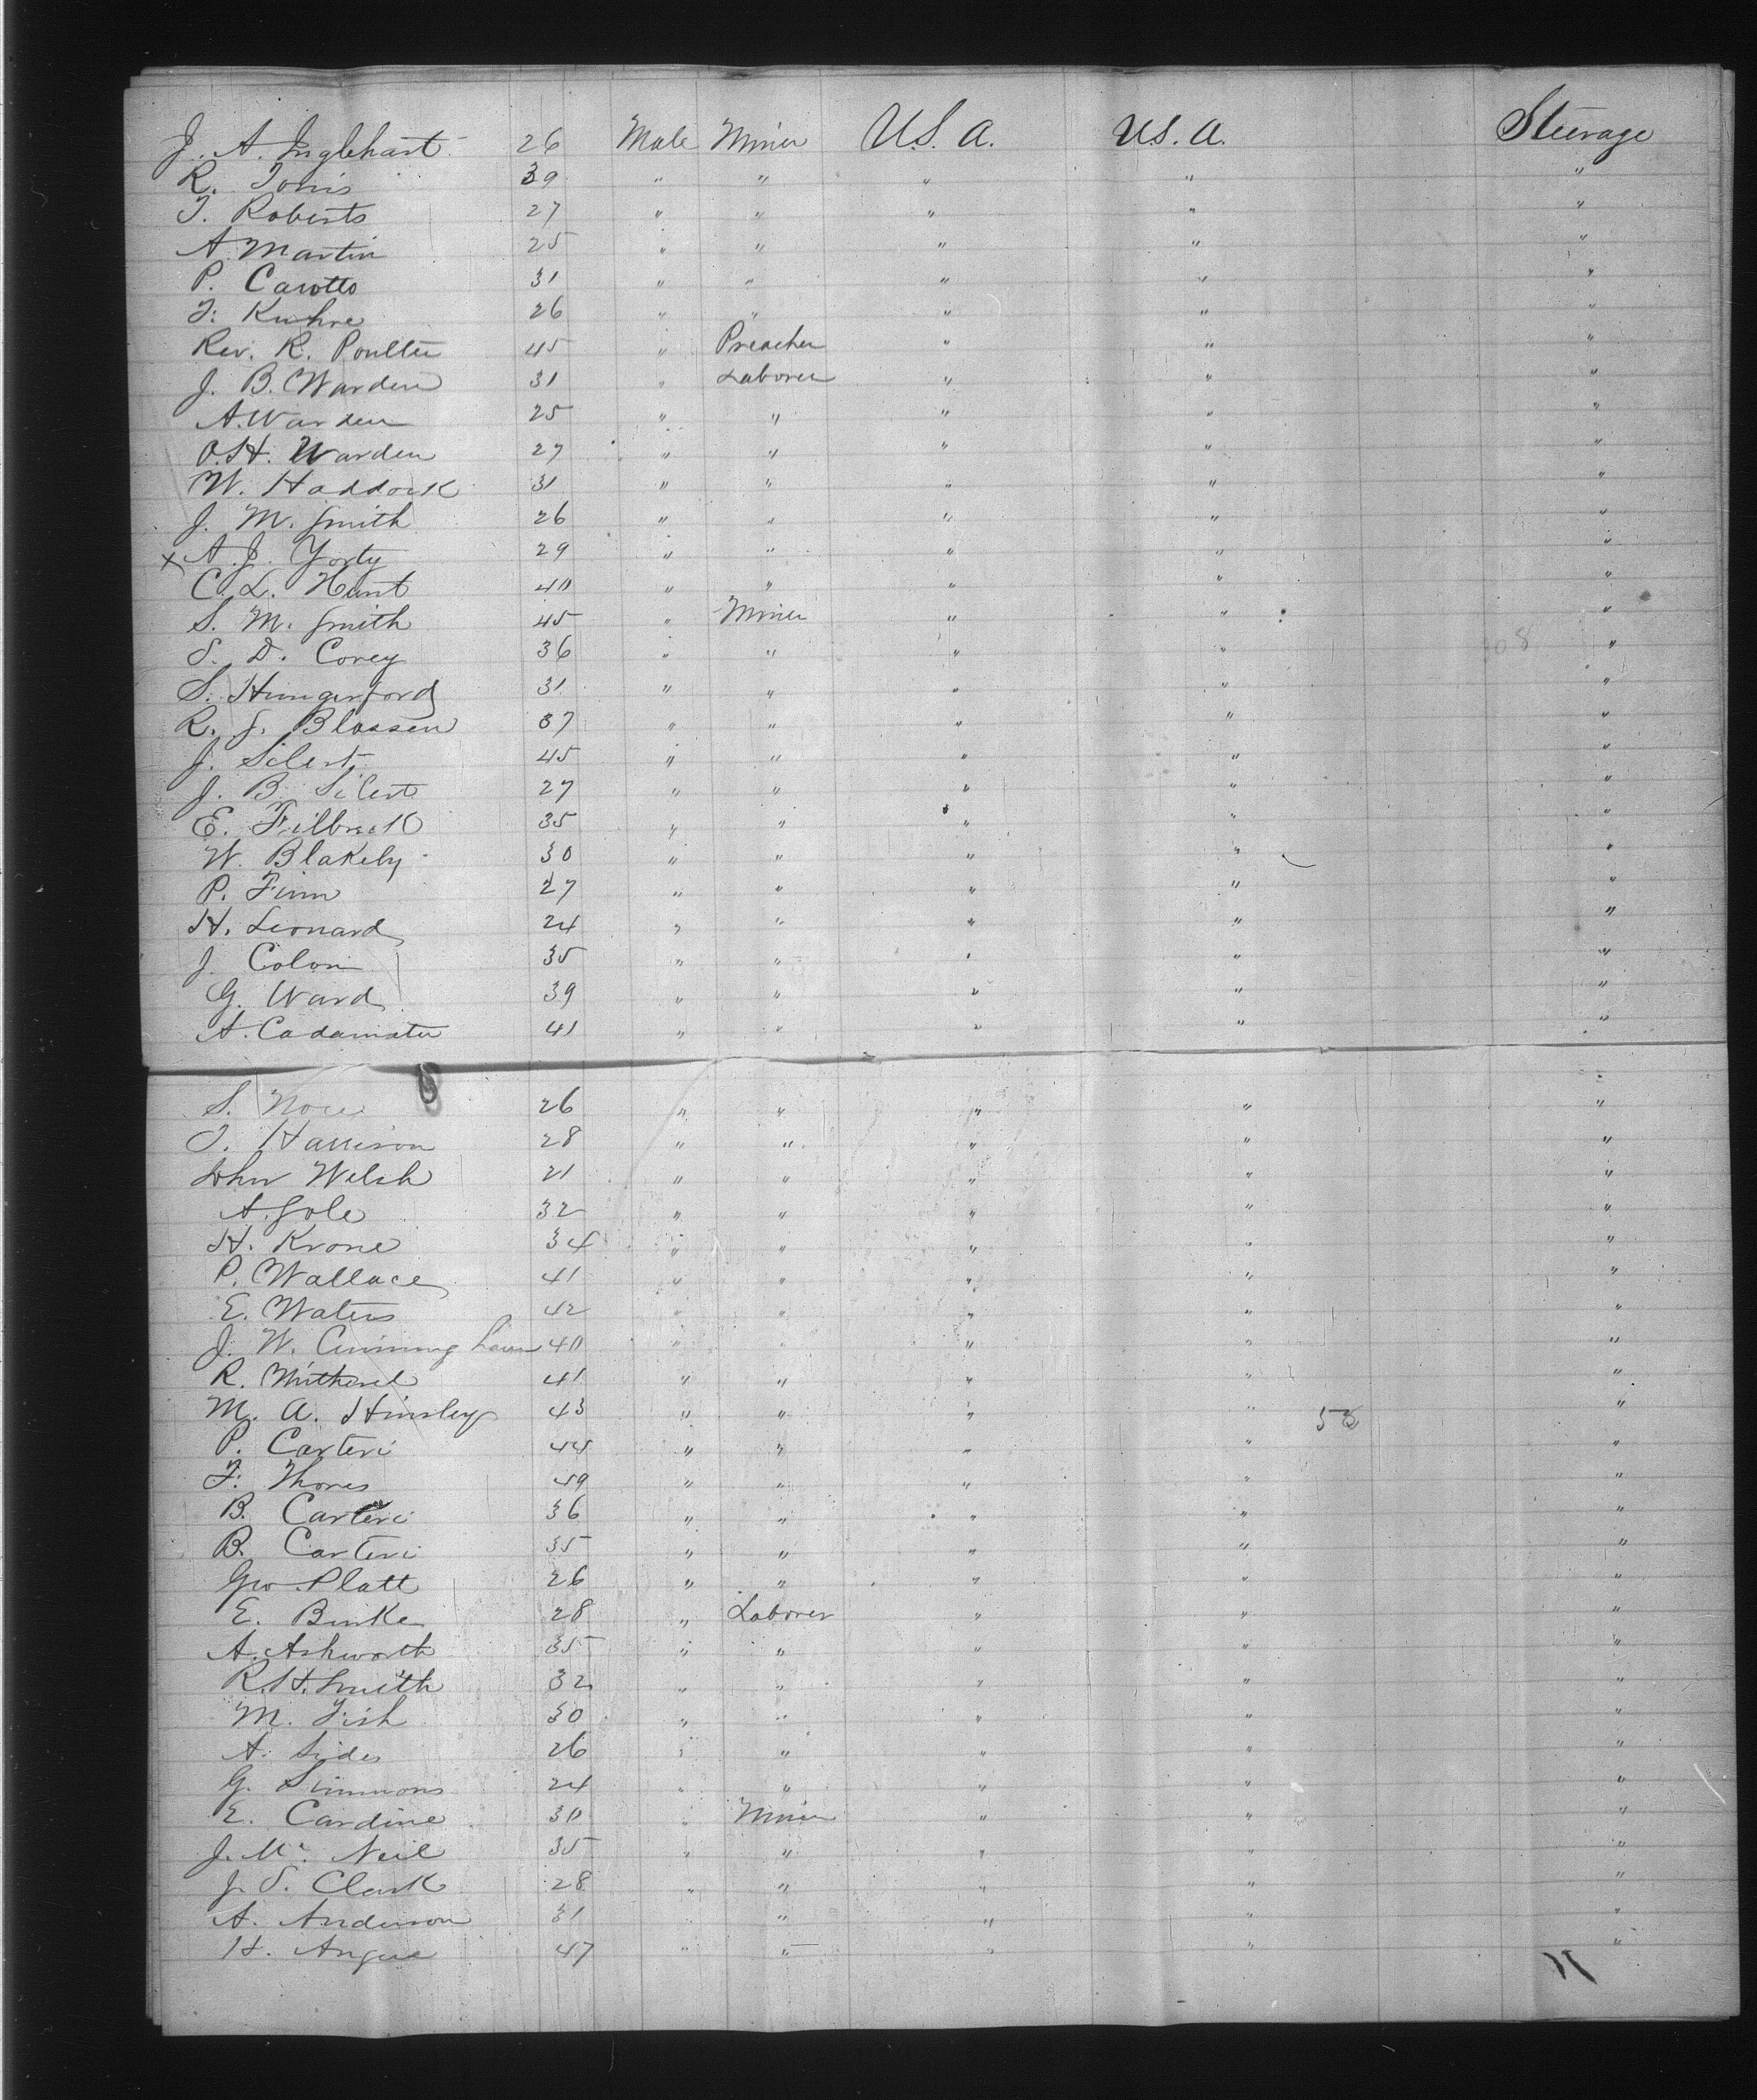 J. A. Inglehart 26 Male Miner U.S.A. U.S.A. Steerage
R. Tonis 39 " " " " "
T. Roberts 27 " " " " "
A Martin 25 " " " " "
P. Carotto 31 " " " " "
F. Kuhre 26 " " " " "
Rev. R. Poulter 45 " Preacher " " "
J. B. Warden 31 " Laborer " " "
A. Warden 25 " " " " "
O.H. Warden 27 " " " " "
W. Haddock 31 " " " " "
J. M. Smith 26 " " " " "
x A. J. Yorty 29 " " " " "
C. L. Hunt 40 " " " " "
S. M. Smith 45 " Miner " " "
S. D. Corey 36 " " " " "
S. Hungerford 31 " " " " "
R. J. Blossen 37 " " " " "
J. Silert 45 " " " " "
J. B. Silert 27 " " " " "
E. Filbrick 35 " " " " "
W. Blakely 30 " " " " "
P. Finn 27 " " " " "
H. Leonard 24 " " " " "
J. Colon 35 " " " " "
G. Ward 39 " " " " "
A. Cadamater 41 " " " " "
S. 26 " " " " "
T. Harrison 28 " " " " "
John Welsh 21 " " " " "
A. Gole 32 " " " " "
H. Krone 34 " " " " "
P. Wallace 41 " " " " "
E. Waters 42 " " " " "
J. W. Cunningham 40 " " " " "
R. 41 " " " " "
M. A. Hinsley 43 " " " " "
P. Carteri 44 " " " " "
F. Thores 49 " " " " "
B. Carteri 36 " " " " "
B. Carteri 35 " " " " "
Geo. Platt 26 " " " " "
E. Burke 28 " Laborer " " "
A. Ashworth 35 " " " " "
R. H. Smith 32 " " " " "
M. Fish 30 " " " " "
A. Sides 26 " " " " "
G. Simmons 24 " " " " "
E. Cardine 30 " Miner " " "
J. Mc. Neil 35 " " " " "
J. S. Clark 28 " " " " "
A. Anderson 31 " " " "
H. Angue 47 " " " " "